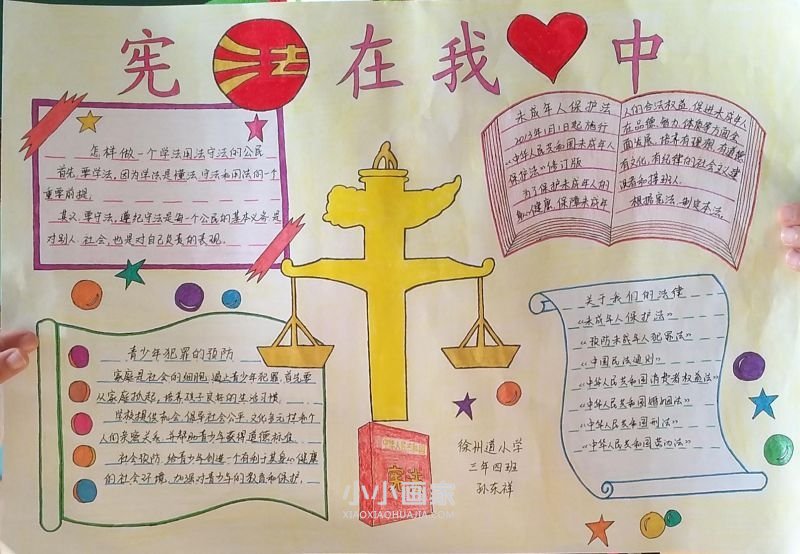 宪法在我中
怎样做一个学法用法守法的公民
首先,要学法,因为学法是懂法,守法和用法的一个
重要前提。
其次,要守法,遵纪守法是每一个公民的基本义务,是
对别人、社会,也是对自己负责的表现。
未成年人保护法
2013年1月1日起施行
《中华人民共和国未成年人
保护法》修订版
为了保护未成年人的
身心健康,保障未成年
人的合法权益,促进未成年人
在品德、智力、体质等方面全
面发展,培养有理想、有道德、
有文化、有纪律的社会主义建
设者和接班人,
根据宪法,制定本法。
青少年犯罪的预防
家庭是社会的细胞,遏止青少年犯罪,首先要
从家庭抓起,培养孩子良好的生活习惯。
学校提供机会,倡导社会公平、文化多元性和个
人们亲密关系,并帮助青少年获得道德标准。
社会预防,给青少年创造一个有利于其身心健康
的社会环境,加强对青少年的教育和保护。
关于我们的法律
《未成年人保护法》
《预防未成年人犯罪法》
《中国民法通则》
《中华人民共和国消费者权益法》
《中华人民共和国婚姻法》
《中华人民共和国刑法》
《中华人民共和国宪法》
中华人民共和国
宪法
徐州道小学
三年四班
孙东祥
小小画家
XIAOXIAOHUAJIA.COM